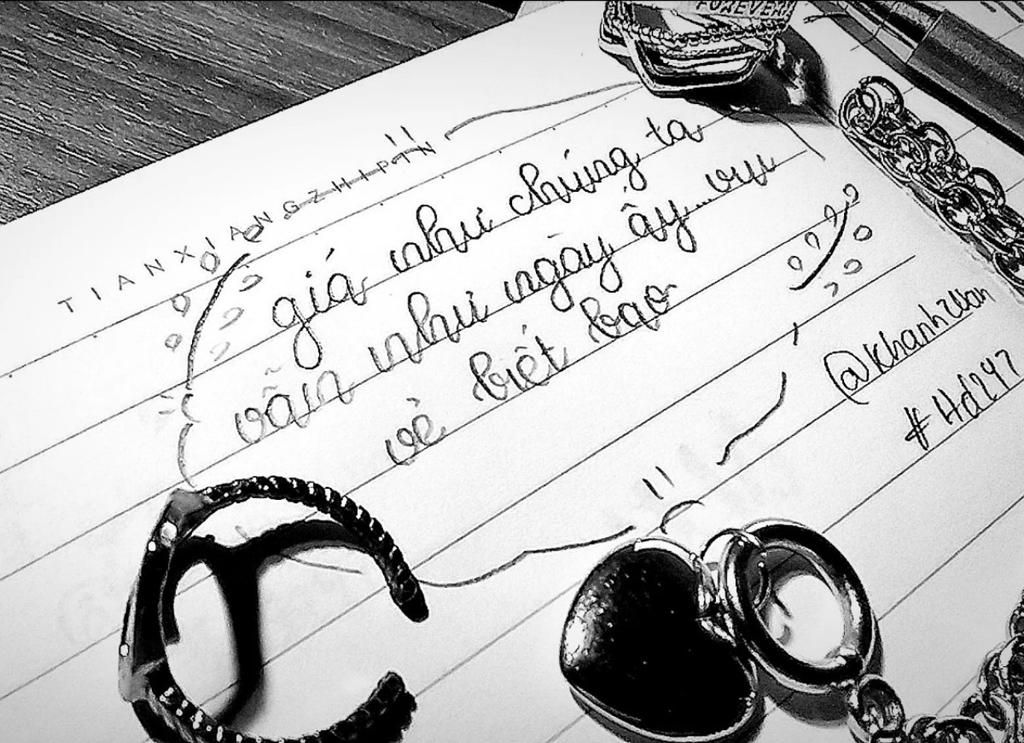 FOREVER
TIANXIANGZHIPIN
giá như chúng ta
vẫn như ngày ấy... vui
vẻ biết bao
@Khanh2Van
#Hd247